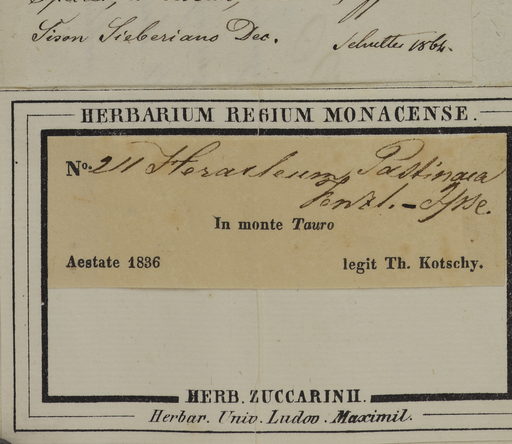 Sison Sieberiano Dec.
Schultes 1864.
HERBARIUM REGIUM MONACENSE.
No. 211 Heracleum Pastinaca
Fenzl.
In monte Tauro
Aestate 1836 legit Th. Kotschy.
HERB. ZUCCARINII.
Herbar. Univ. Ludov. Maximil.